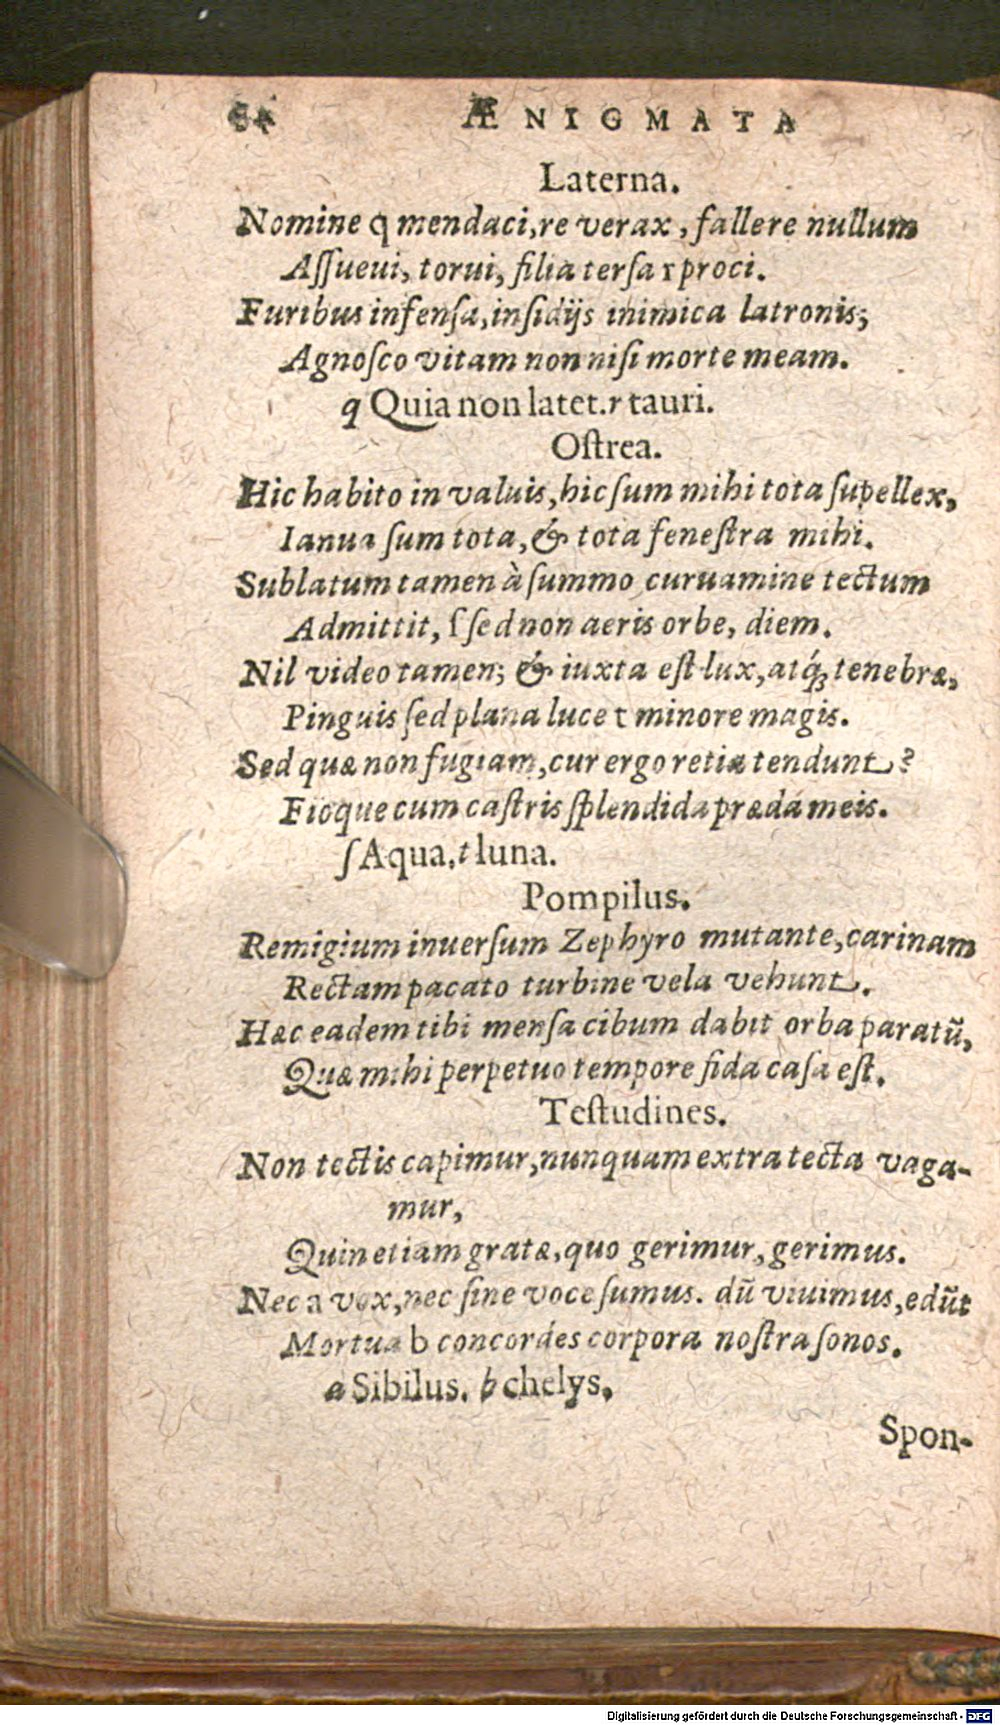 ÆNIGMATA
Laterna.
Nomine q mendaci, re verax, fallere nullum
Aſſueui, torui, filia terſa r proci.
Furibus infenſa, inſidijs inimica latronis;
Agnoſco vitam non niſi morte meam.
q Quia non latet. r tauri.
Oſtrea.
Hic habito in valuis, hic ſum mihi tota ſupellex,
Ianua ſum tota, & tota feneſtra mihi.
Sublatum tamen à ſummo curuamine tectum
Admittit, ſ ſed non aeris orbe, diem.
Nil video tamen; & iuxta eſt lux, atq́; tenebræ,
Pinguis ſed plana luce t minore magis.
Sed quæ non fugiam, cur ergo retia tendunt?
Fioque cum caſtris ſplendida præda meis.
ſ Aqua, t luna.
Pompilus.
Remigium inuerſum Zephyro mutante, carinam
Rectam pacato turbine vela vehunt.
Hæc eadem tibi menſa cibum dabit orba paratũ,
Quæ mihi perpetuo tempore fida caſa eſt.
Teſtudines.
Non tectis capimur, nunquam extra tecta vaga-
mur,
Quin etiam gratæ, quo gerimur, gerimus.
Nec a vox, nec ſine voce ſumus. dũ viuimus, edũt
Mortua b concordes corpora noſtra ſonos.
a Sibilus. b chelys.
Spon-
Digitalisierung gefördert durch die Deutsche Forschungsgemeinschaft - DFG